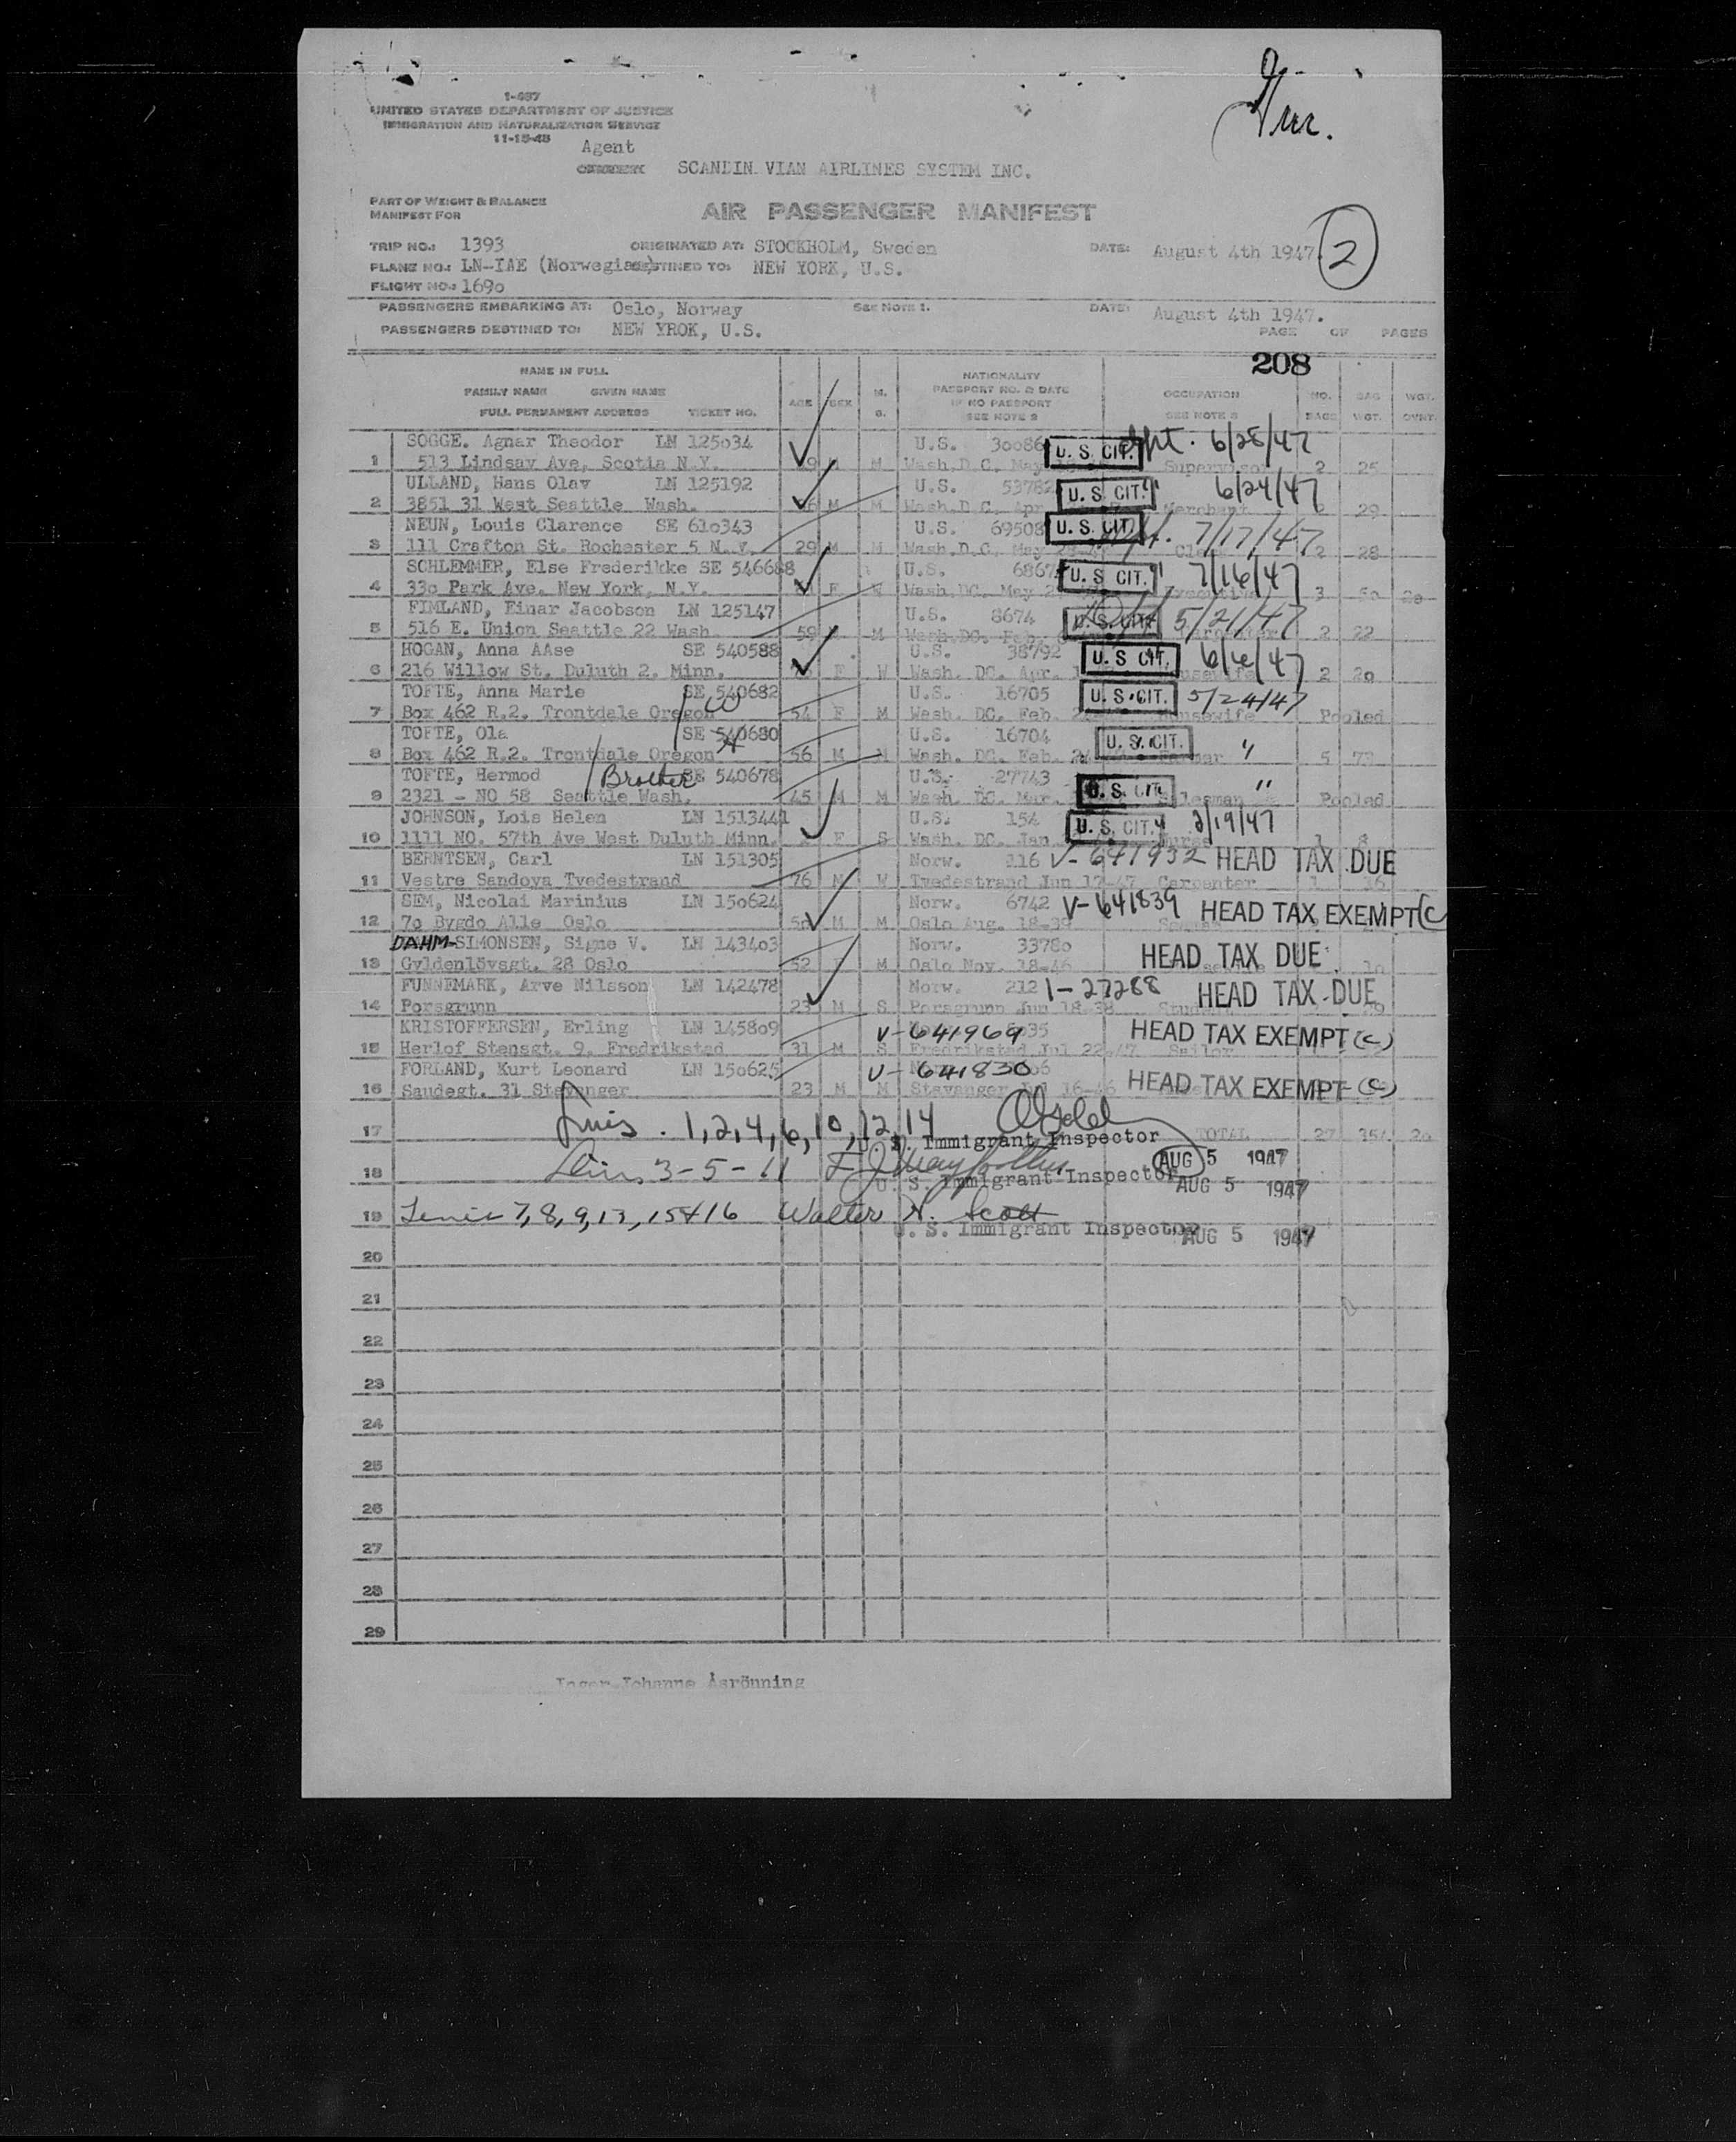 1-487
UNITED STATES DEPARTMENT OF JUSTICE
IMMIGRATION AND NATURALIZATION SERVICE
11-15-45
Agent
SCANDIN VIAN AIRLINES SYSTEM INC.
PART OF WEIGHT & BALANCE
MANIFEST FOR
AIR PASSENGER MANIFEST
TRIP NO.: 1393 ORIGINATED AT: STOCKHOLM, Sweden DATE: August 4th 1947. 2
PLANE NO.: LN-IAE (Norwegian) DESTINED TO: NEW YORK, U.S.
FLIGHT NO.: 1690
PASSENGERS EMBARKING AT: Oslo, Norway SEE NOTE 1. DATE: August 4th 1947.
PASSENGERS DESTINED TO: NEW YROK, U.S. PAGE OF PAGES
208
NAME IN FULL
FAMILY NAME GIVEN NAME
FULL PERMANENT ADDRESS TICKET NO.
AGE SEX M. S.
NATIONALITY
PASSPORT NO. & DATE
IF NO PASSPORT
SEE NOTE 2
OCCUPATION
SEE NOTE 3
NO. BAGS BAG WGT. WGT. OVWT.
SOGGE. Agnar Theodor LN 125034 U.S. 30086 U. S. CIT. 6/28/47
1 513 Lindsay Ave, Scotia N.Y. M Wash,D C, May Supervisor 2 25
ULLAND, Hans Olav LN 125192 U.S. 53782 U. S. CIT. " 6/24/47
2 3851 31 West Seattle Wash. M M Wash,D C, Apr Merchant 2 29
NEUN, Louis Clarence SE 610343 U.S. 69508 U. S. CIT. 7/17/47
3 111 Crafton St. Rochester 5 N.Y. 29 M M Wash,D.C, May 2 28
SCHLEMMER, Else Frederikke SE 546688 U.S. 6867 U. S. CIT. " 7/16/47
4 330 Park Ave. New York, N.Y. F W Wash,DC, May Executive 3
FIMLAND, Einar Jacobson LN 125147 U.S. 8674 U. S. CIT. 5/21/47
5 516 E. Union Seattle 22 Wash. 59 M Wash,DC, Feb, Carpenter 2 22
HOGAN, Anna AAse SE 540588 U.S. 38792 U. S CIT. 6/6/47
6 216 Willow St. Duluth 2. Minn. F W Wash. DC. Apr. Housewife 2 20
TOFTE, Anna Marie SE 540682 U.S. 16705 U. S. CIT. 5/24/47
7 Box 462 R.2. Trontdale Oregon W 54 F M Wash. DC. Feb. Housewife Pooled
TOFTE, Ola SE 540680 U.S. 16704 U. S. CIT. "
8 Box 462 R.2. Trontdale Oregon H 56 M M Wash. DC. Feb. Farmer 5
TOFTE, Hermod Brother SE 540678 U.S. 27743 U. S. CIT. "
9 2321 - NO 58 Seattle Wash. 45 M M Wash. DC. Mar. Salesman Pooled
JOHNSON, Lois Helen LN 1513441 U.S. 154 U. S. CIT.
10 1111 NO. 57th Ave West Duluth Minn. F S Wash. DC. Jan Nurse 1 8
BERNTSEN, Carl LN 151305 Norw. 216 V-641932 HEAD TAX DUE
11 Vestre Sandoya Tvedestrand 76 M W Tvedestrand Jun 17-47 Carpenter 1 16
SEM, Nicolai Marinius LN 150624 Norw. 6742 V-641839 HEAD TAX EXEMPT (C
12 70 Bygdo Alle Oslo M M Oslo Aug. 18-39
DAHM-SIMONSEN, Signe V. LN 143403 Norw. 33780 HEAD TAX DUE
13 Gyldenlövsgt. 28 Oslo 52 M Oslo Nov. 18-46
FUNNEMARK, Arve Nilsson LN 142478 Norw. 212 1-27288 HEAD TAX DUE
14 Porsgrunn 23 M S Porsgrunn Jun 18-38 Student
KRISTOFFERSEN, Erling LN 145809 V-641969 HEAD TAX EXEMPT (C)
15 Herlof Stensgt. 9. Fredrikstad 31 M S Fredrikstad Jul 22-47 Sailor
FORLAND, Kurt Leonard LN 150625 V-641830 HEAD TAX EXEMPT (C)
16 Saudegt. 31 Stavanger 23 M M Stavanger Jul 16-46
17 1,2,4,6,10,12,14 TOTAL 27 354 20
U. S. Immigrant Inspector AUG 5 1947
18 3-5-11
U. S. Immigrant Inspector AUG 5 1947
19 7,8,9,13,15+16 Walter H. Scott
U. S. Immigrant Inspector AUG 5 1947
20
21
22
23
24
25
26
27
28
29
Inger Johanne Åsrönning